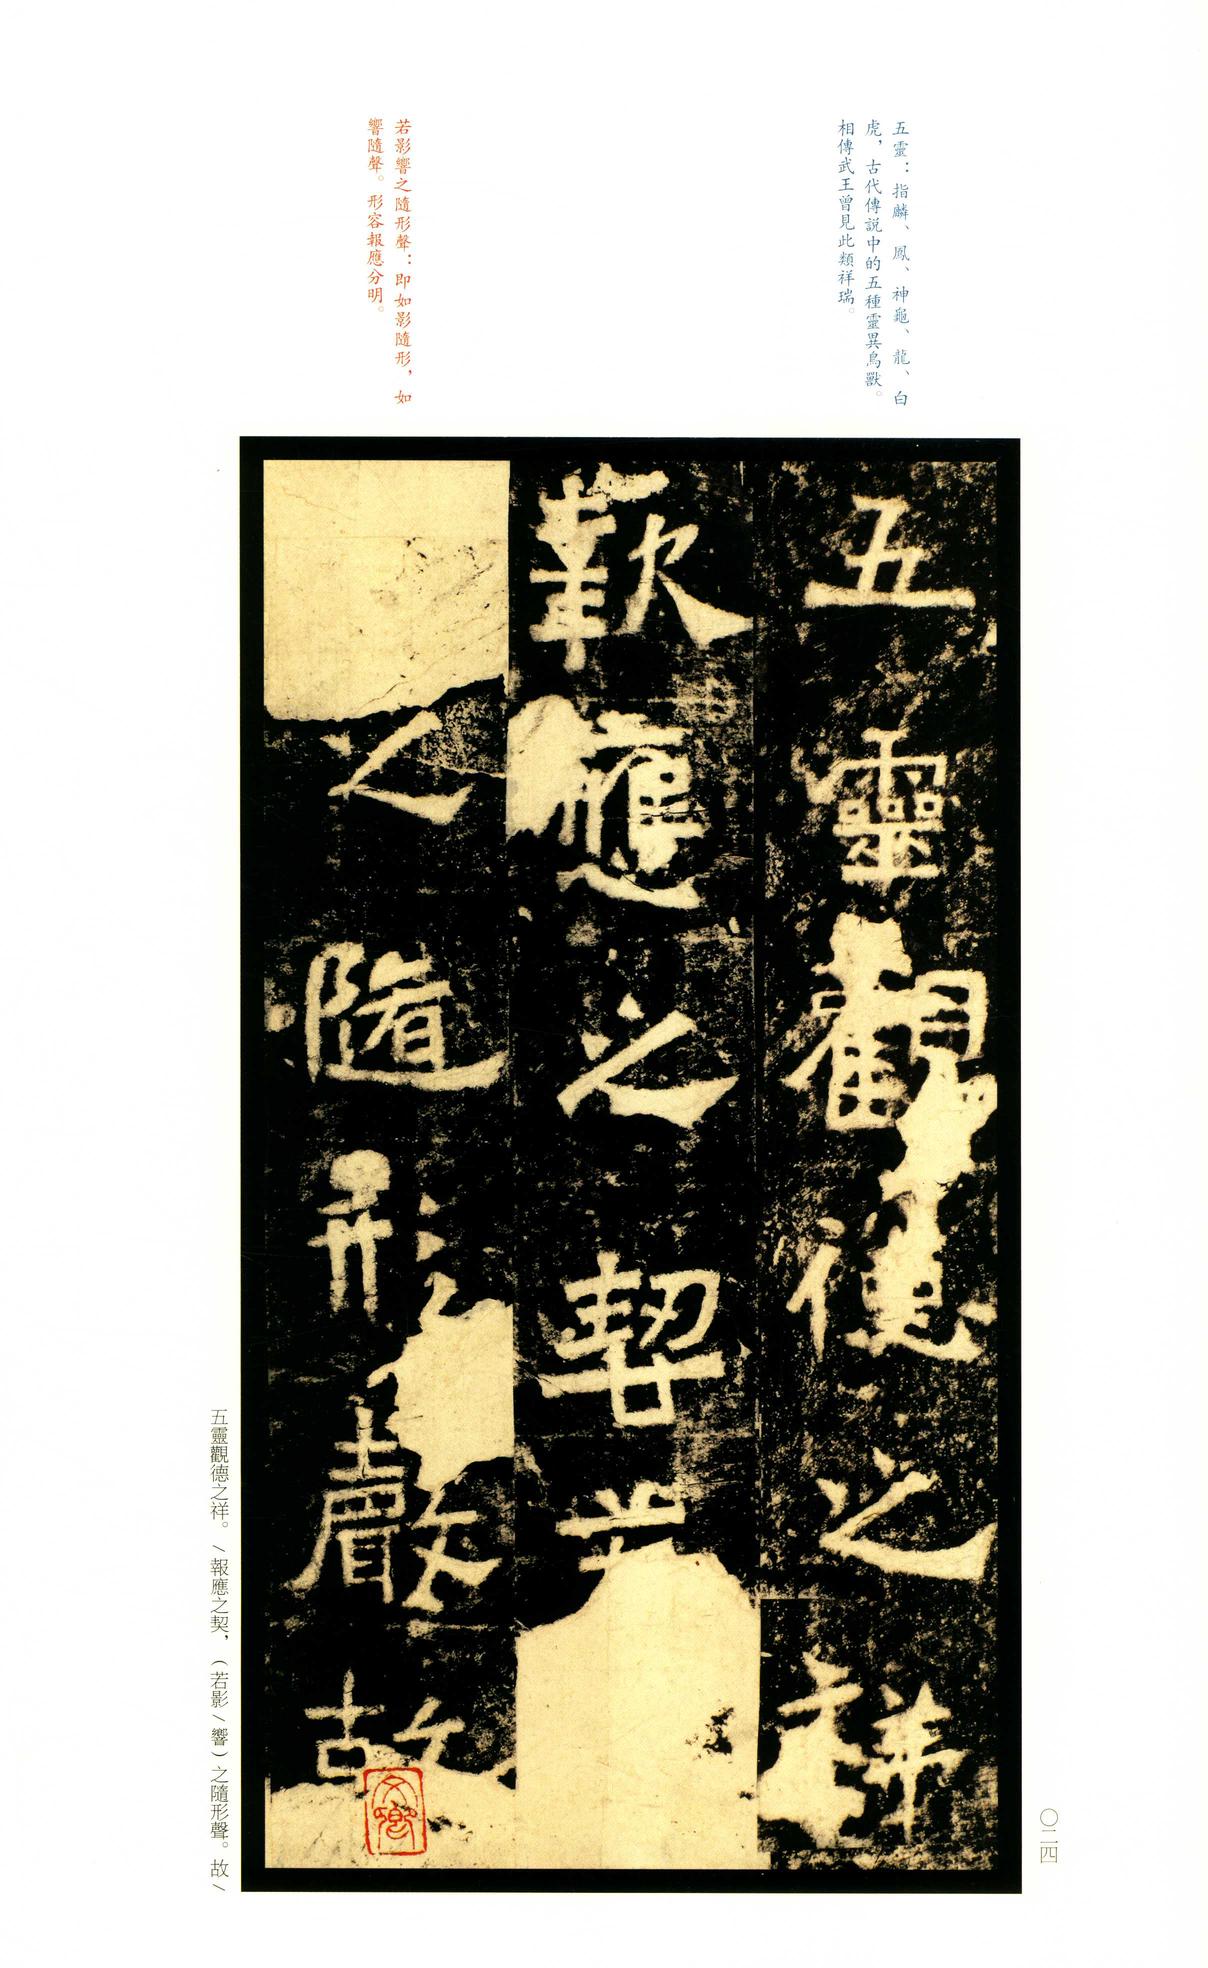 五靈：指麟、鳳、神龜、龍、白
虎，古代傳説中的五種靈異鳥獸。
相傳武王曾見此類祥瑞。
若影響之隨形聲：即如影隨形，如
響隨聲。形容報應分明。
五靈觀德之祥
報應之契若
之隨形聲故
五靈觀德之祥。/報應之契，（若影/響）之隨形聲。故/
〇二四